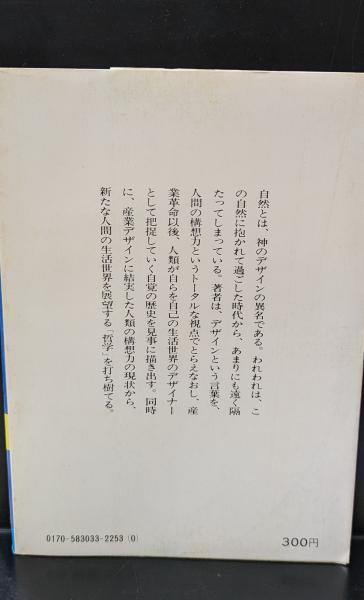 自然とは、神のデザインの異名である。われわれは、こ
の自然に抱かれて過ごした時代から、あまりにも遠く隔
たってしまっている。著者は、デザインという言葉を、
人間の構想力というトータルな視点でとらえなおし、産
業革命以後、人類が自らを自己の生活世界のデザイナー
として把捉していく自覚の歴史を見事に描き出す。同時
に、産業デザインに結実した人類の構想力の現状から、
新たな人間の生活世界を展望する「哲学」を打ち樹てる。
0170-583033-2253(0)
300円